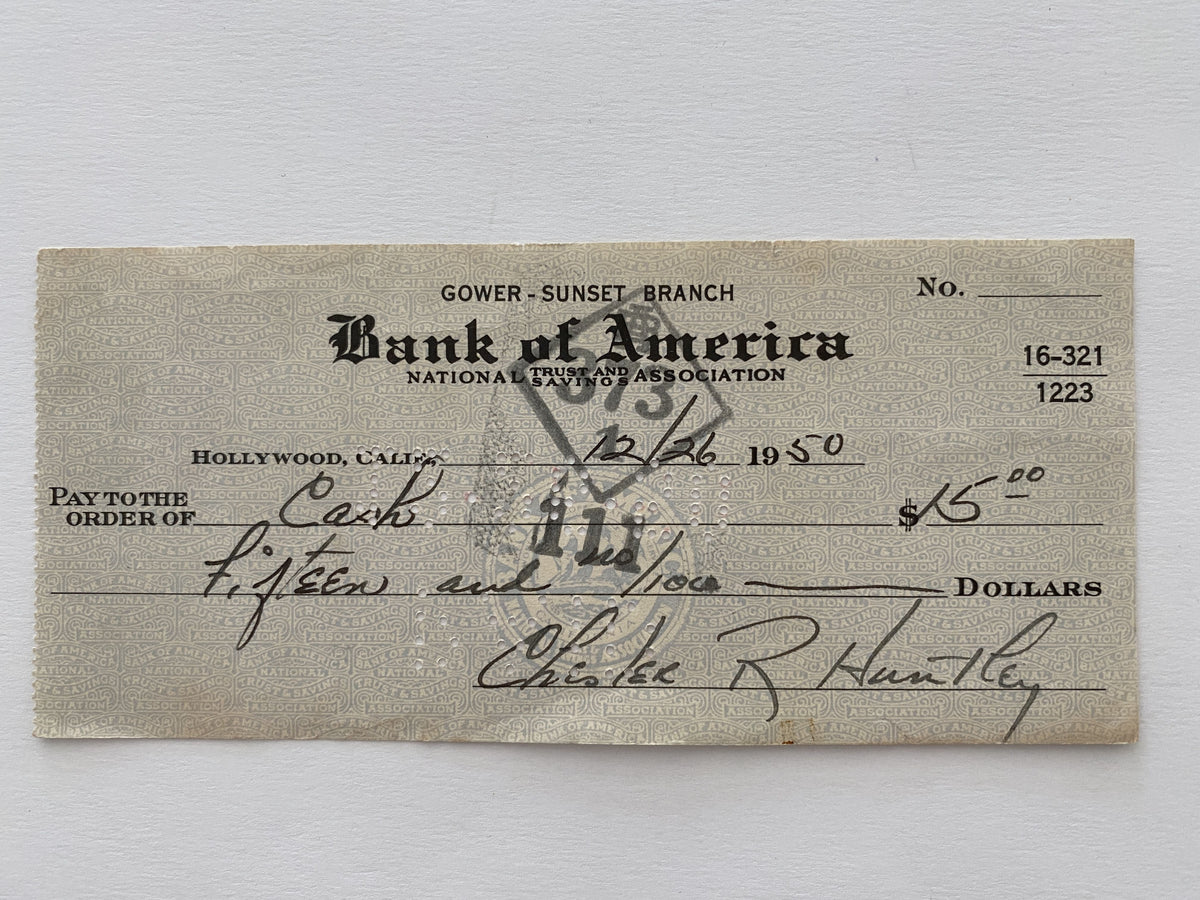 GOWER - SUNSET BRANCH
No.
Bank of America
NATIONAL TRUST AND SAVINGS ASSOCIATION
16-321
1223
573
1
HOLLYWOOD, CALIF., 12/26 1950
PAY TO THE ORDER OF Cash $15 00
111
Fifteen and no/100 DOLLARS
Chester R Huntley